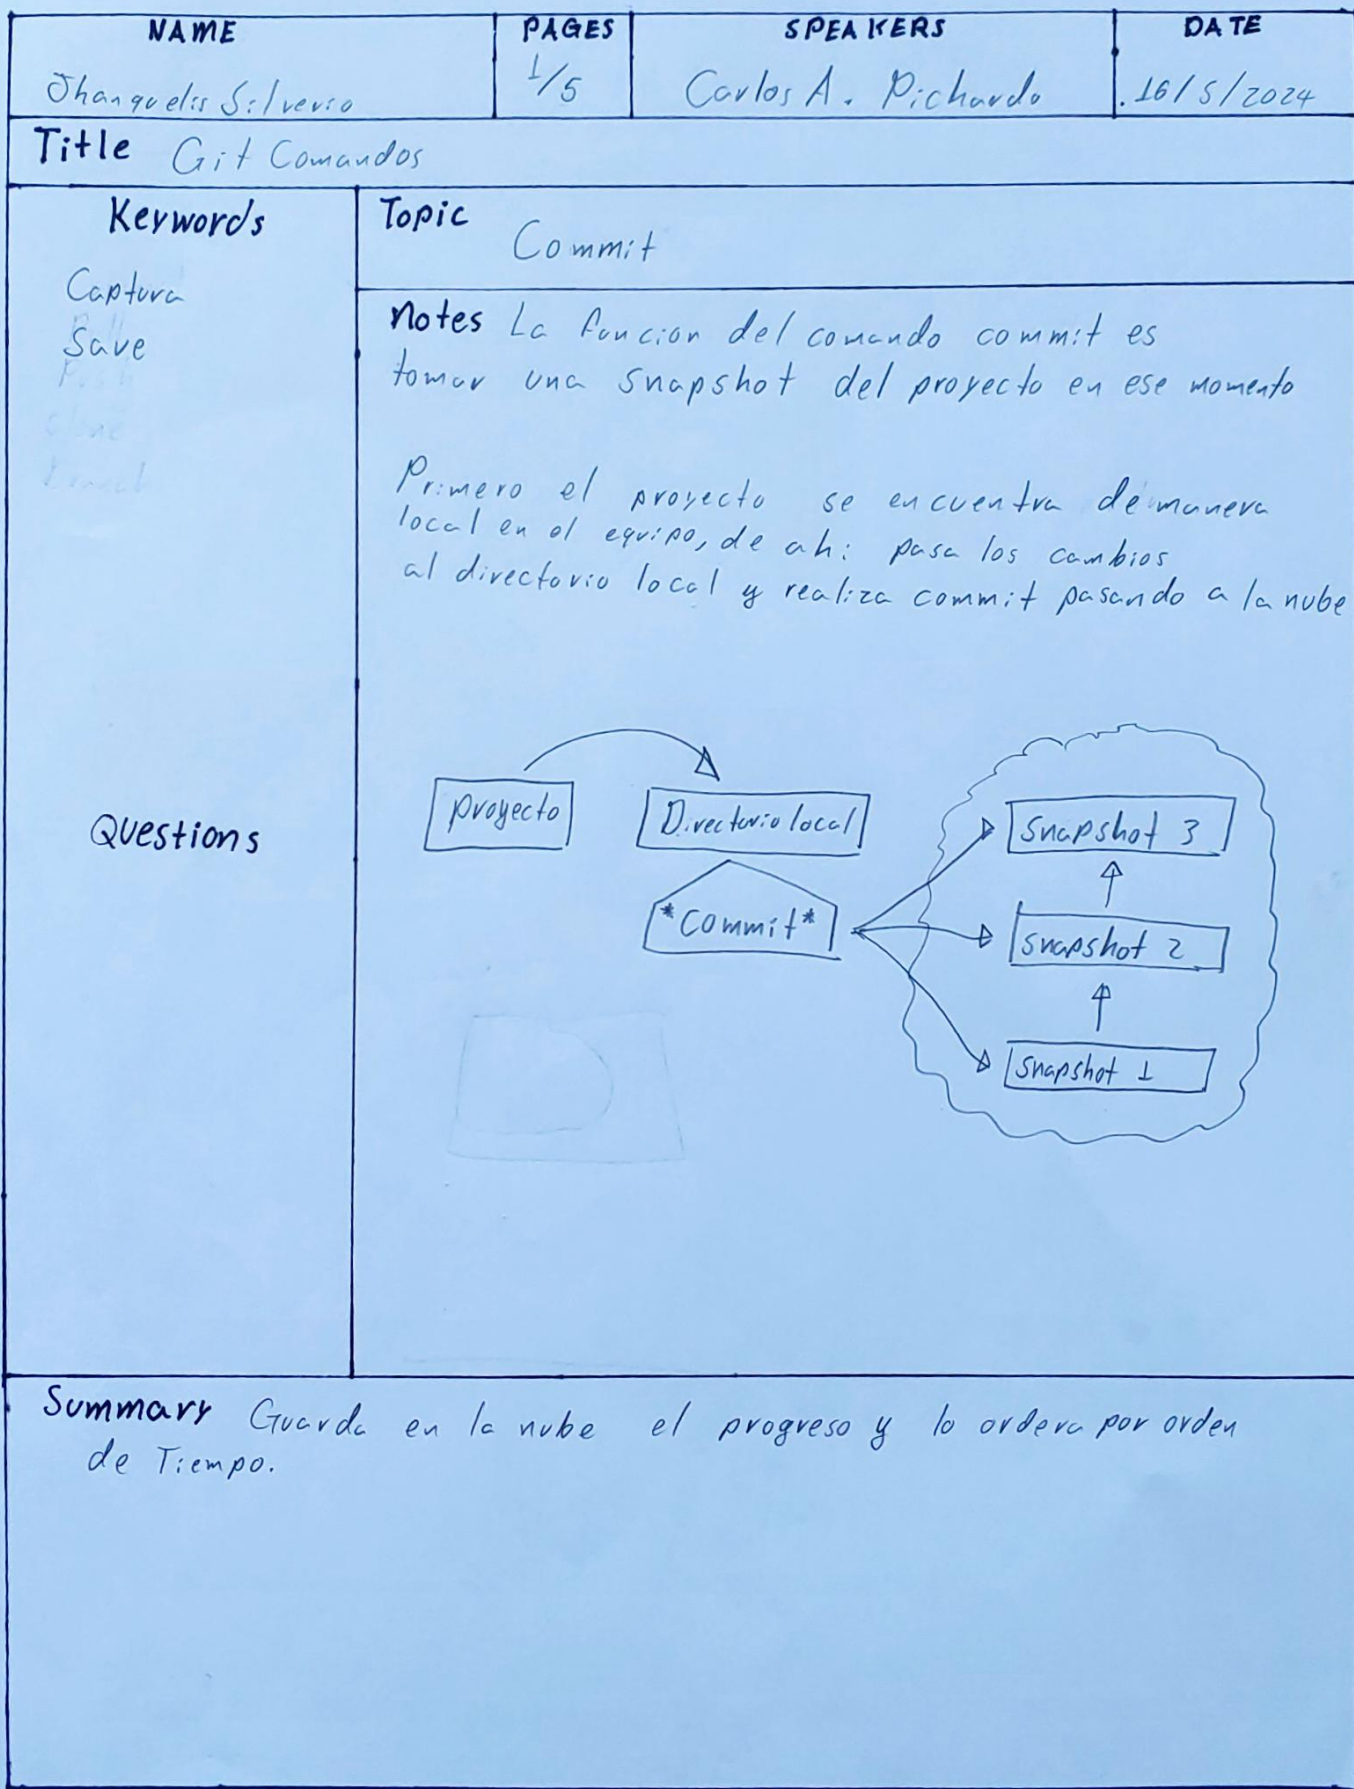 NAME PAGES SPEAKERS DATE
Jhanquelis Silverio 1/5 Carlos A. Pichardo 16/5/2024
Title Git Comandos
Keywords
Captura
Save
Push
Clone
Topic
Commit
Notes La funcion del comando commit es
tomar una snapshot del proyecto en ese momento
Primero el proyecto se encuentra de manera
local en el equipo, de ahi pasa los cambios
al directorio local y realiza commit pasando a la nube
Questions
proyecto
Directorio local
*Commit*
Snapshot 3
Snapshot 2
Snapshot 1
Summary Guarda en la nube el progreso y lo ordera por orden
de Tiempo.